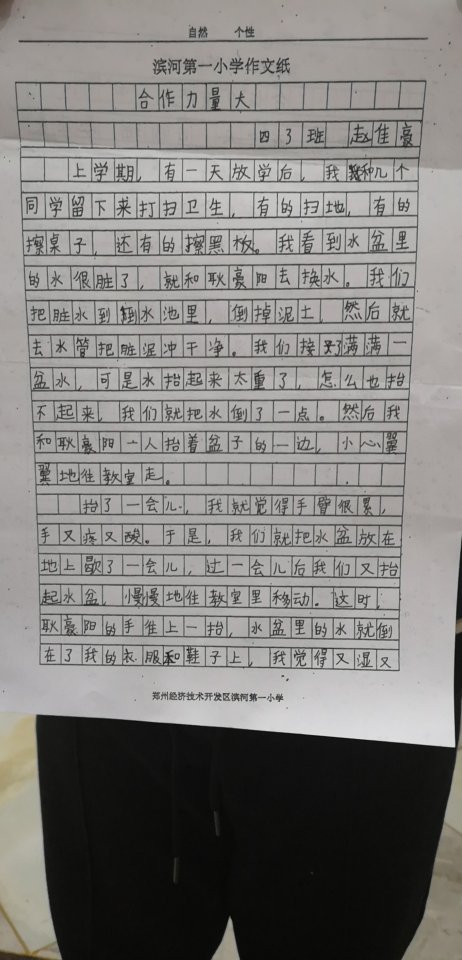 自然 个性
滨河第一小学作文纸
合作力量大
四3班 赵佳豪
上学期，有一天放学后，我和几个
同学留下来打扫卫生，有的扫地，有的
擦桌子，还有的擦黑板。我看到水盆里
的水很脏了，就和耿豪阳去换水。我们
把脏水到水池里，倒掉泥土，然后就
去水管把脏泥冲干净。我们接了满满一
盆水，可是水抬起来太重了，怎么也抬
不起来，我们就把水倒了一点。然后我
和耿豪阳一人抬着盆子的一边，小心翼
翼地往教室走。
抬了一会儿，我就觉得手臂很累，
手又疼又酸。于是，我们就把水盆放在
地上歇了一会儿，过一会儿后我们又抬
起水盆，慢慢地往教室里移动。这时，
耿豪阳的手往上一抬，水盆里的水就倒
在了我的衣服和鞋子上，我觉得又湿又
郑州经济技术开发区滨河第一小学